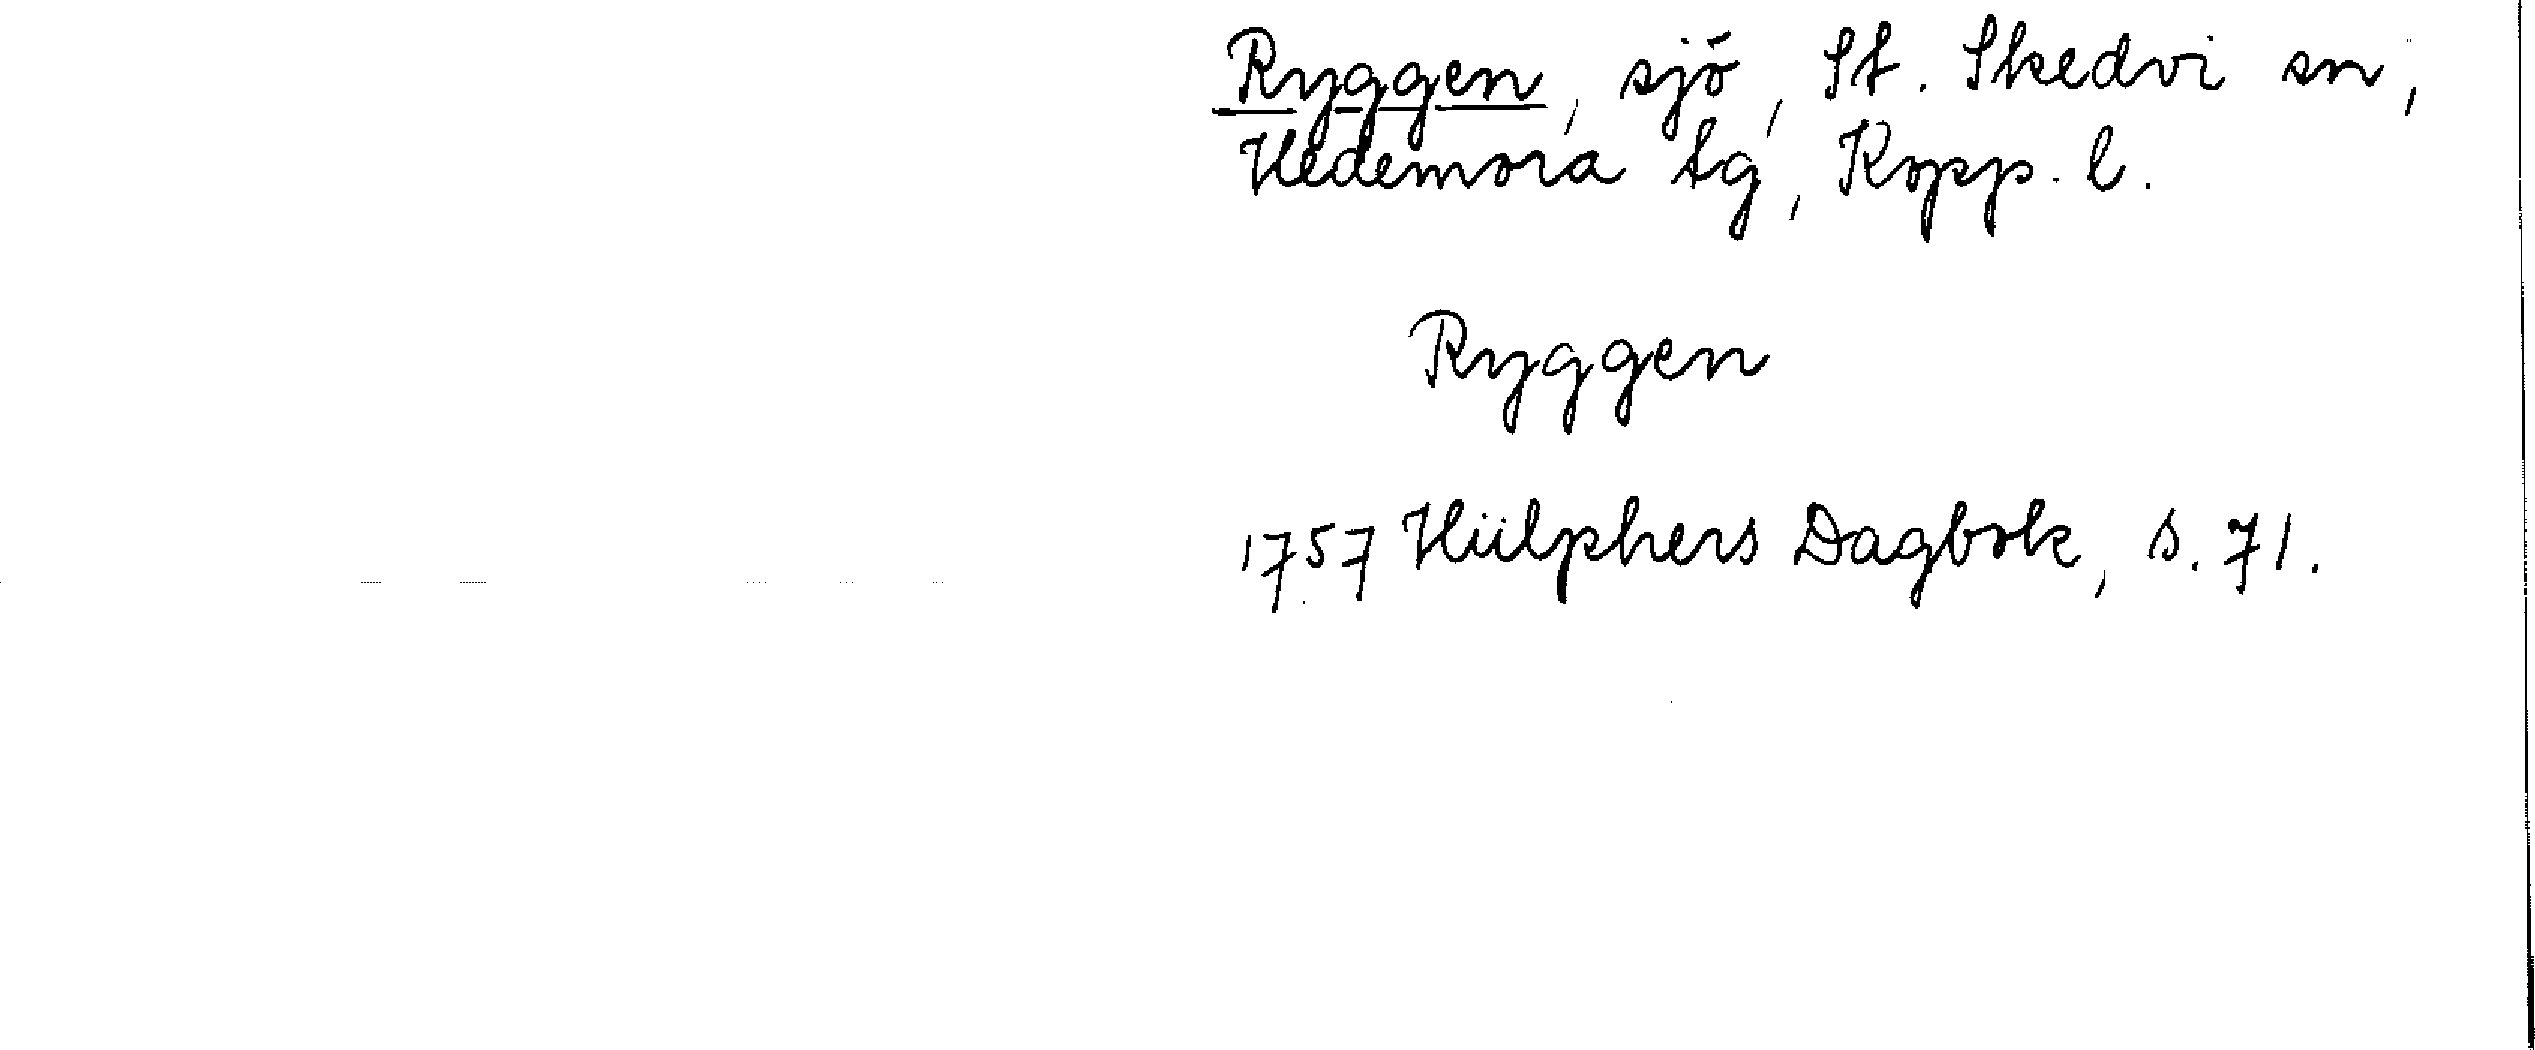 Ryggen, sjö, St. Skedvi sn,
Hedemora tg, Kopp. l.
Ryggen
1757 Hülphers Dagbok, s. 71.